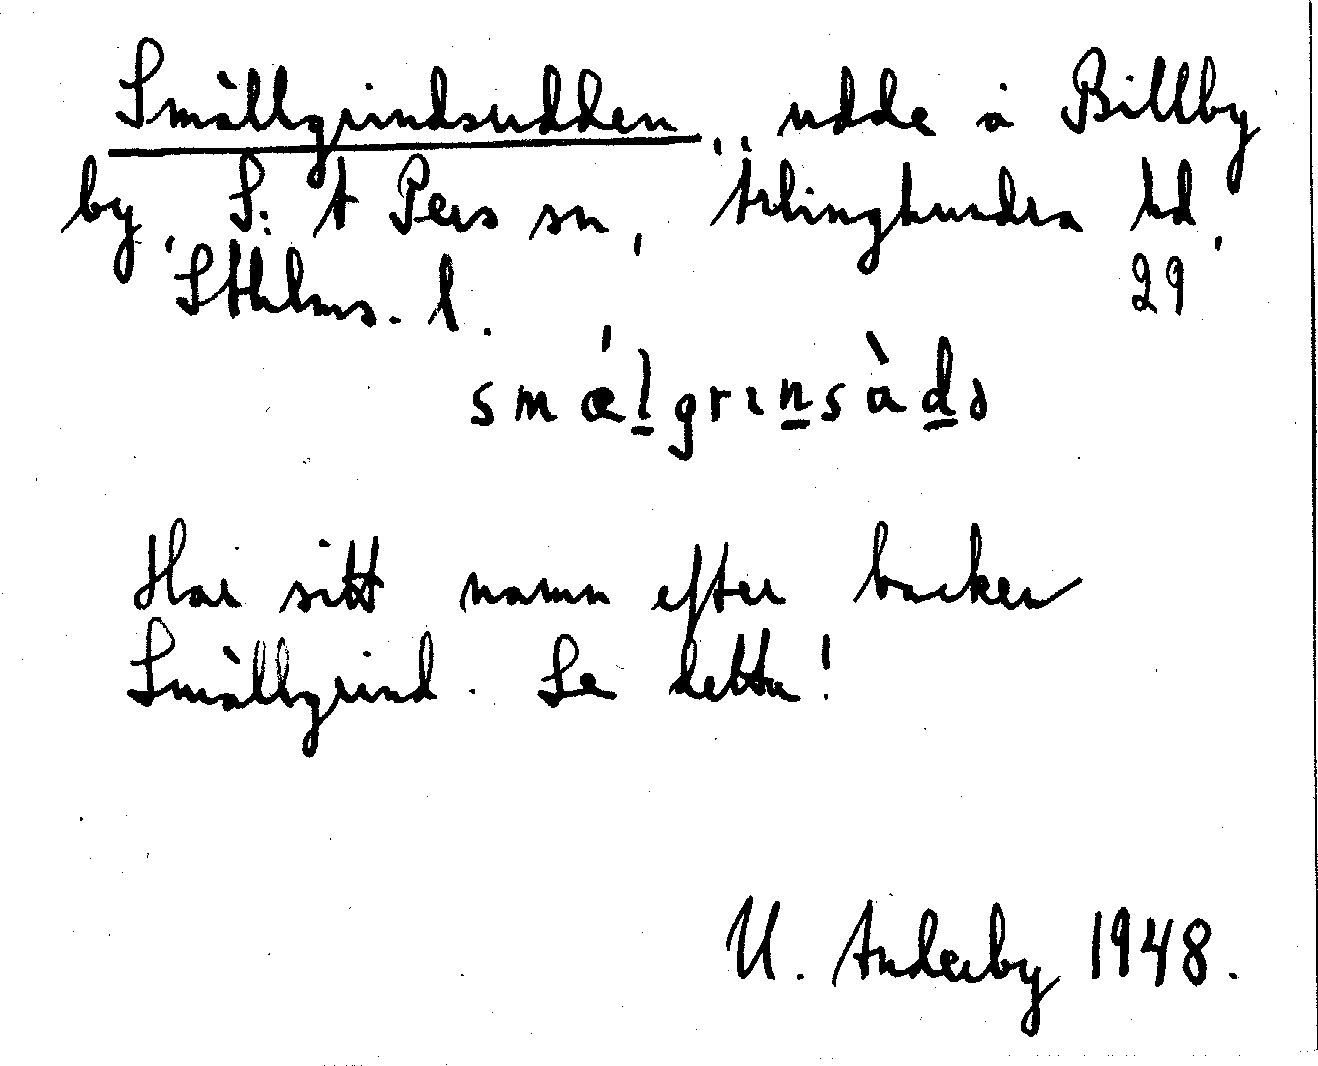 Smällgrindsudden, udde å Billby
by, S:t Pers sn, Ärlinghundra hd,
Sthlms. l. 29
smǽl̲grɩn̲sàd̲ə
Har sitt namn efter backen
Smällgrind. Se detta!
U. Anderby 1948.